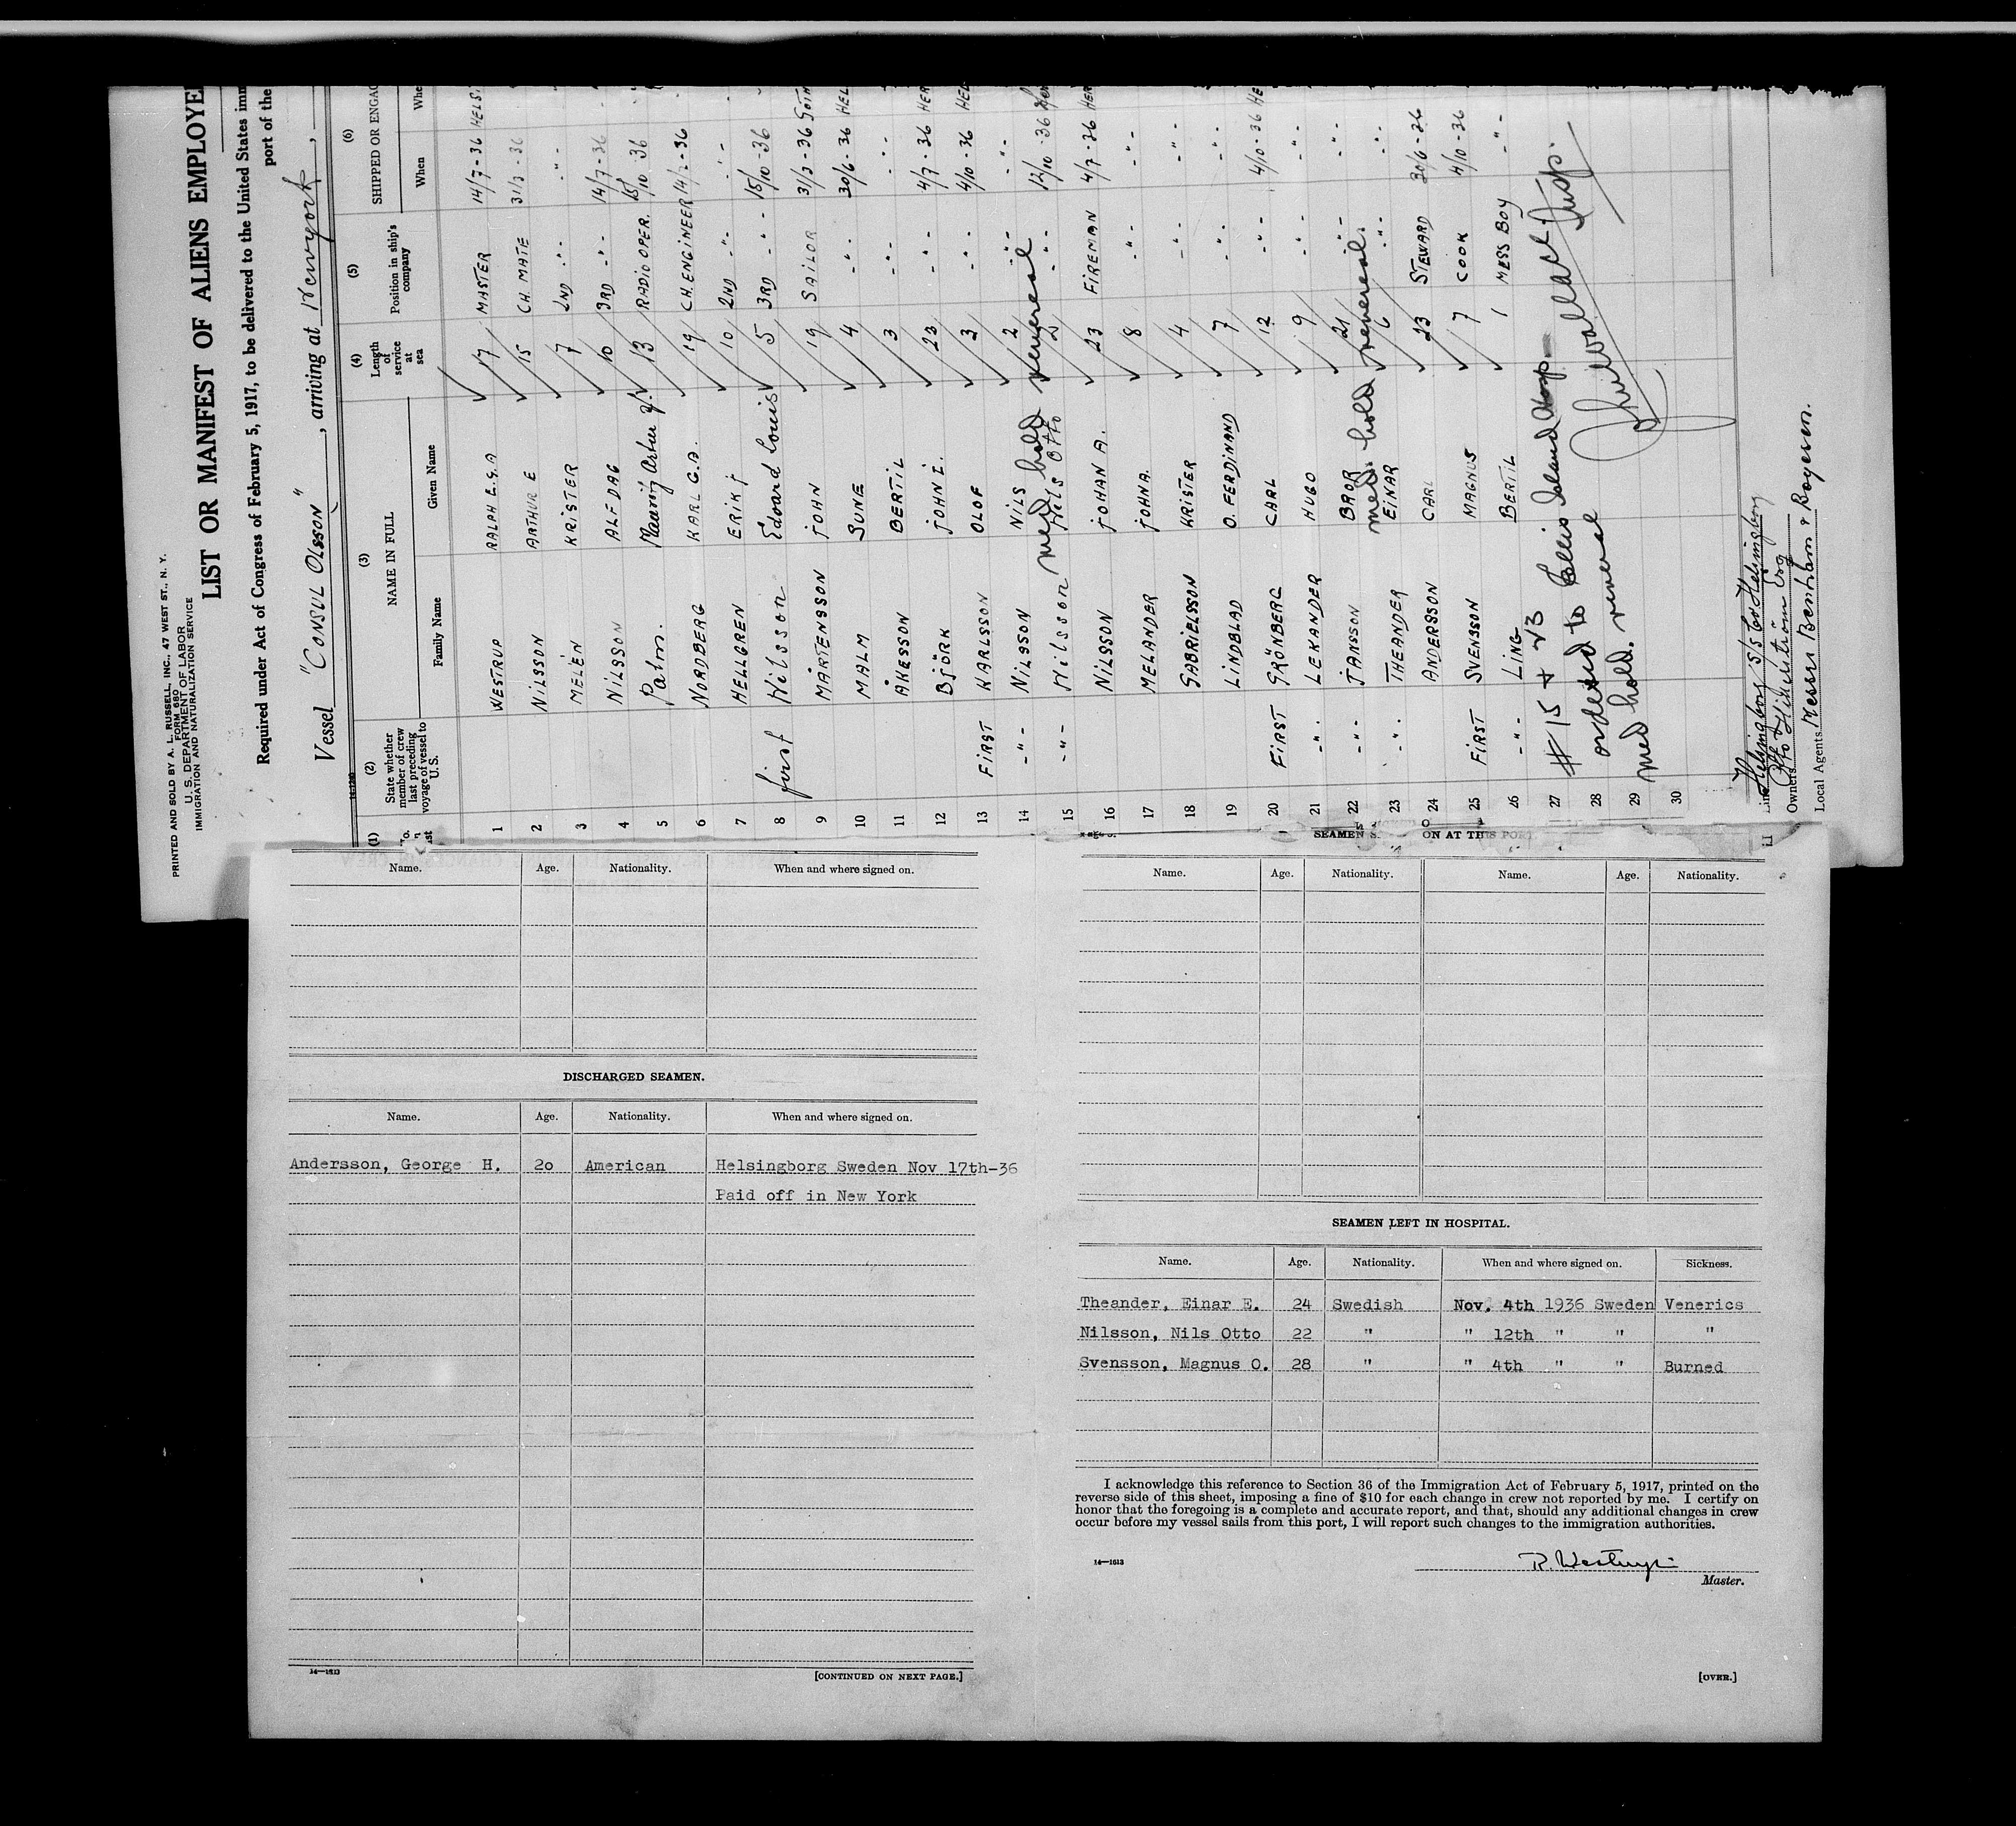 PRINTED AND SOLD BY A. L. RUSSELL, INC., 47 WEST ST., N. Y.
FORM 680
U. S. DEPARTMENT OF LABOR
IMMIGRATION AND NATURALIZATION SERVICE
LIST OR MANIFEST OF ALIENS EMPLOYE
Required under Act of Congress of February 5, 1917, to be delivered to the United States imm
port of the
Vessel "CONSUL OLSSON", arriving at Newyork,
(1) (2) State whether member of crew last preceding voyage of vessel to U.S. (3) NAME IN FULL Family Name Given Name (4) Length of service at sea (5) Position in ship's company (6) SHIPPED OR ENGAG When Whe
1 WESTRUP RALPH E.G.A 17 MASTER 14/7-36 HELSI
2 NILSSON ARTHUR E 15 CH. MATE 31/3-36
3 MELÉN KRISTER 7 2ND -"- -"-
4 NILSSON ALF DAG 10 3RD -"- 14/7-36
5 Palm. 13 RADIO OPER. 15/10-36
6 NORDBERG KARL G.A. 19 CH. ENGINEER
7 HELLGREN ERIK J 10 2ND -"-
8 first Nilsson Edvard Louis 5 3RD -"- 15/10-36
9 MÅRTENSSON JOHN 19 SAILOR 31/3-36 GOTH
10 MALM SUNE 4 -"- 30/6-36 HEL
11 ÅKESSON BERTIL 3 -"- -"-
12 BJÖRK JOHN E. 23 -"- 4/7-36 HER
13 FIRST KARLSSON OLOF 3 -"- 4/10-36 HEL
14 -"- NILSSON NILS 2 -"- -"-
med hold venereal
15 -"- Nilsson Nils Otto 2 -"- 12/10-36 Her
16 NILSSON JOHAN A. 23 FIREMAN 4/7-36 HER
17 MELANDER JOHN A. 8 -"- -"-
18 GABRIELSSON KRISTER 4 -"- -"-
19 LINDBLAD O. FERDINAND 7 -"- -"-
20 FIRST GRÖNBERG CARL 12 -"- 4/10-36 HE
21 -"- LEKANDER HUGO 9 -"- -"-
22 -"- JANSSON BROR 21 -"- -"-
med. hold venereal.
23 -"- THEANDER EINAR 6 -"- -"-
24 ANDERSSON CARL 23 STEWARD 30/6-36
25 FIRST SVENSSON MAGNUS 7 COOK 4/10-36
26 -"- LING BERTIL 1 MESS BOY -"-
27 # 15 + 23 to Ellis Island Hosp
28 ordered
29 med hold. venereal
30
Insp.
Helsingborg
Owners
Local Agents Messrs Bentham & Boyesen.
SEAMEN S ON AT THIS PORT
Name. Age. Nationality. When and where signed on.
DISCHARGED SEAMEN.
Name. Age. Nationality. When and where signed on.
Andersson, George H. 2o American Helsingborg Sweden Nov 17th-36
Paid off in New York
14—1613
[CONTINUED ON NEXT PAGE.]
Name. Age. Nationality. Name. Age. Nationality.
SEAMEN LEFT IN HOSPITAL.
Name. Age. Nationality. When and where signed on. Sickness.
Theander, Einar E. 24 Swedish Nov. 4th 1936 Sweden Venerics
Nilsson, Nils Otto 22 " " 12th " " "
Svensson, Magnus O. 28 " " 4th " " Burned
I acknowledge this reference to Section 36 of the Immigration Act of February 5, 1917, printed on the
reverse side of this sheet, imposing a fine of $10 for each change in crew not reported by me. I certify on
honor that the foregoing is a complete and accurate report, and that, should any additional changes in crew
occur before my vessel sails from this port, I will report such changes to the immigration authorities.
14—1613
R. Westrup
Master.
[OVER.]